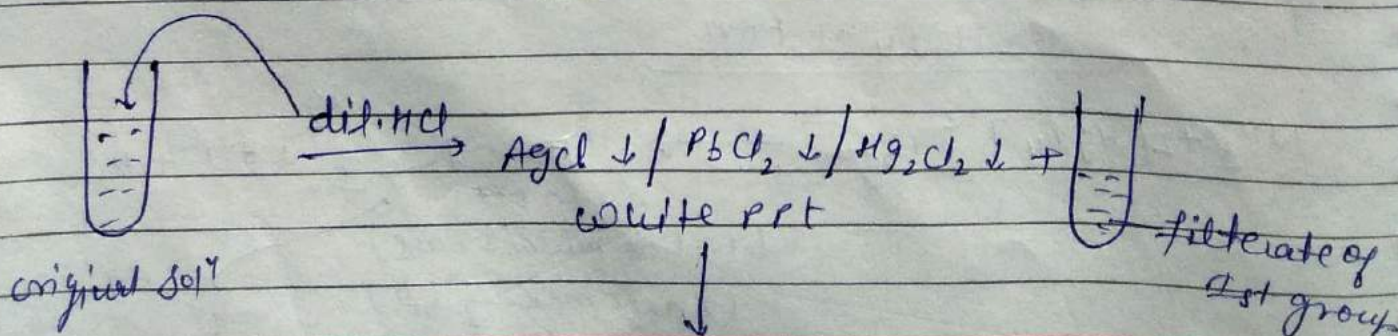 dil.HCl
AgCl ↓ / PbCl₂ ↓ / Hg₂Cl₂ ↓ +
white ppt
original solⁿ
filterate of
Ist group